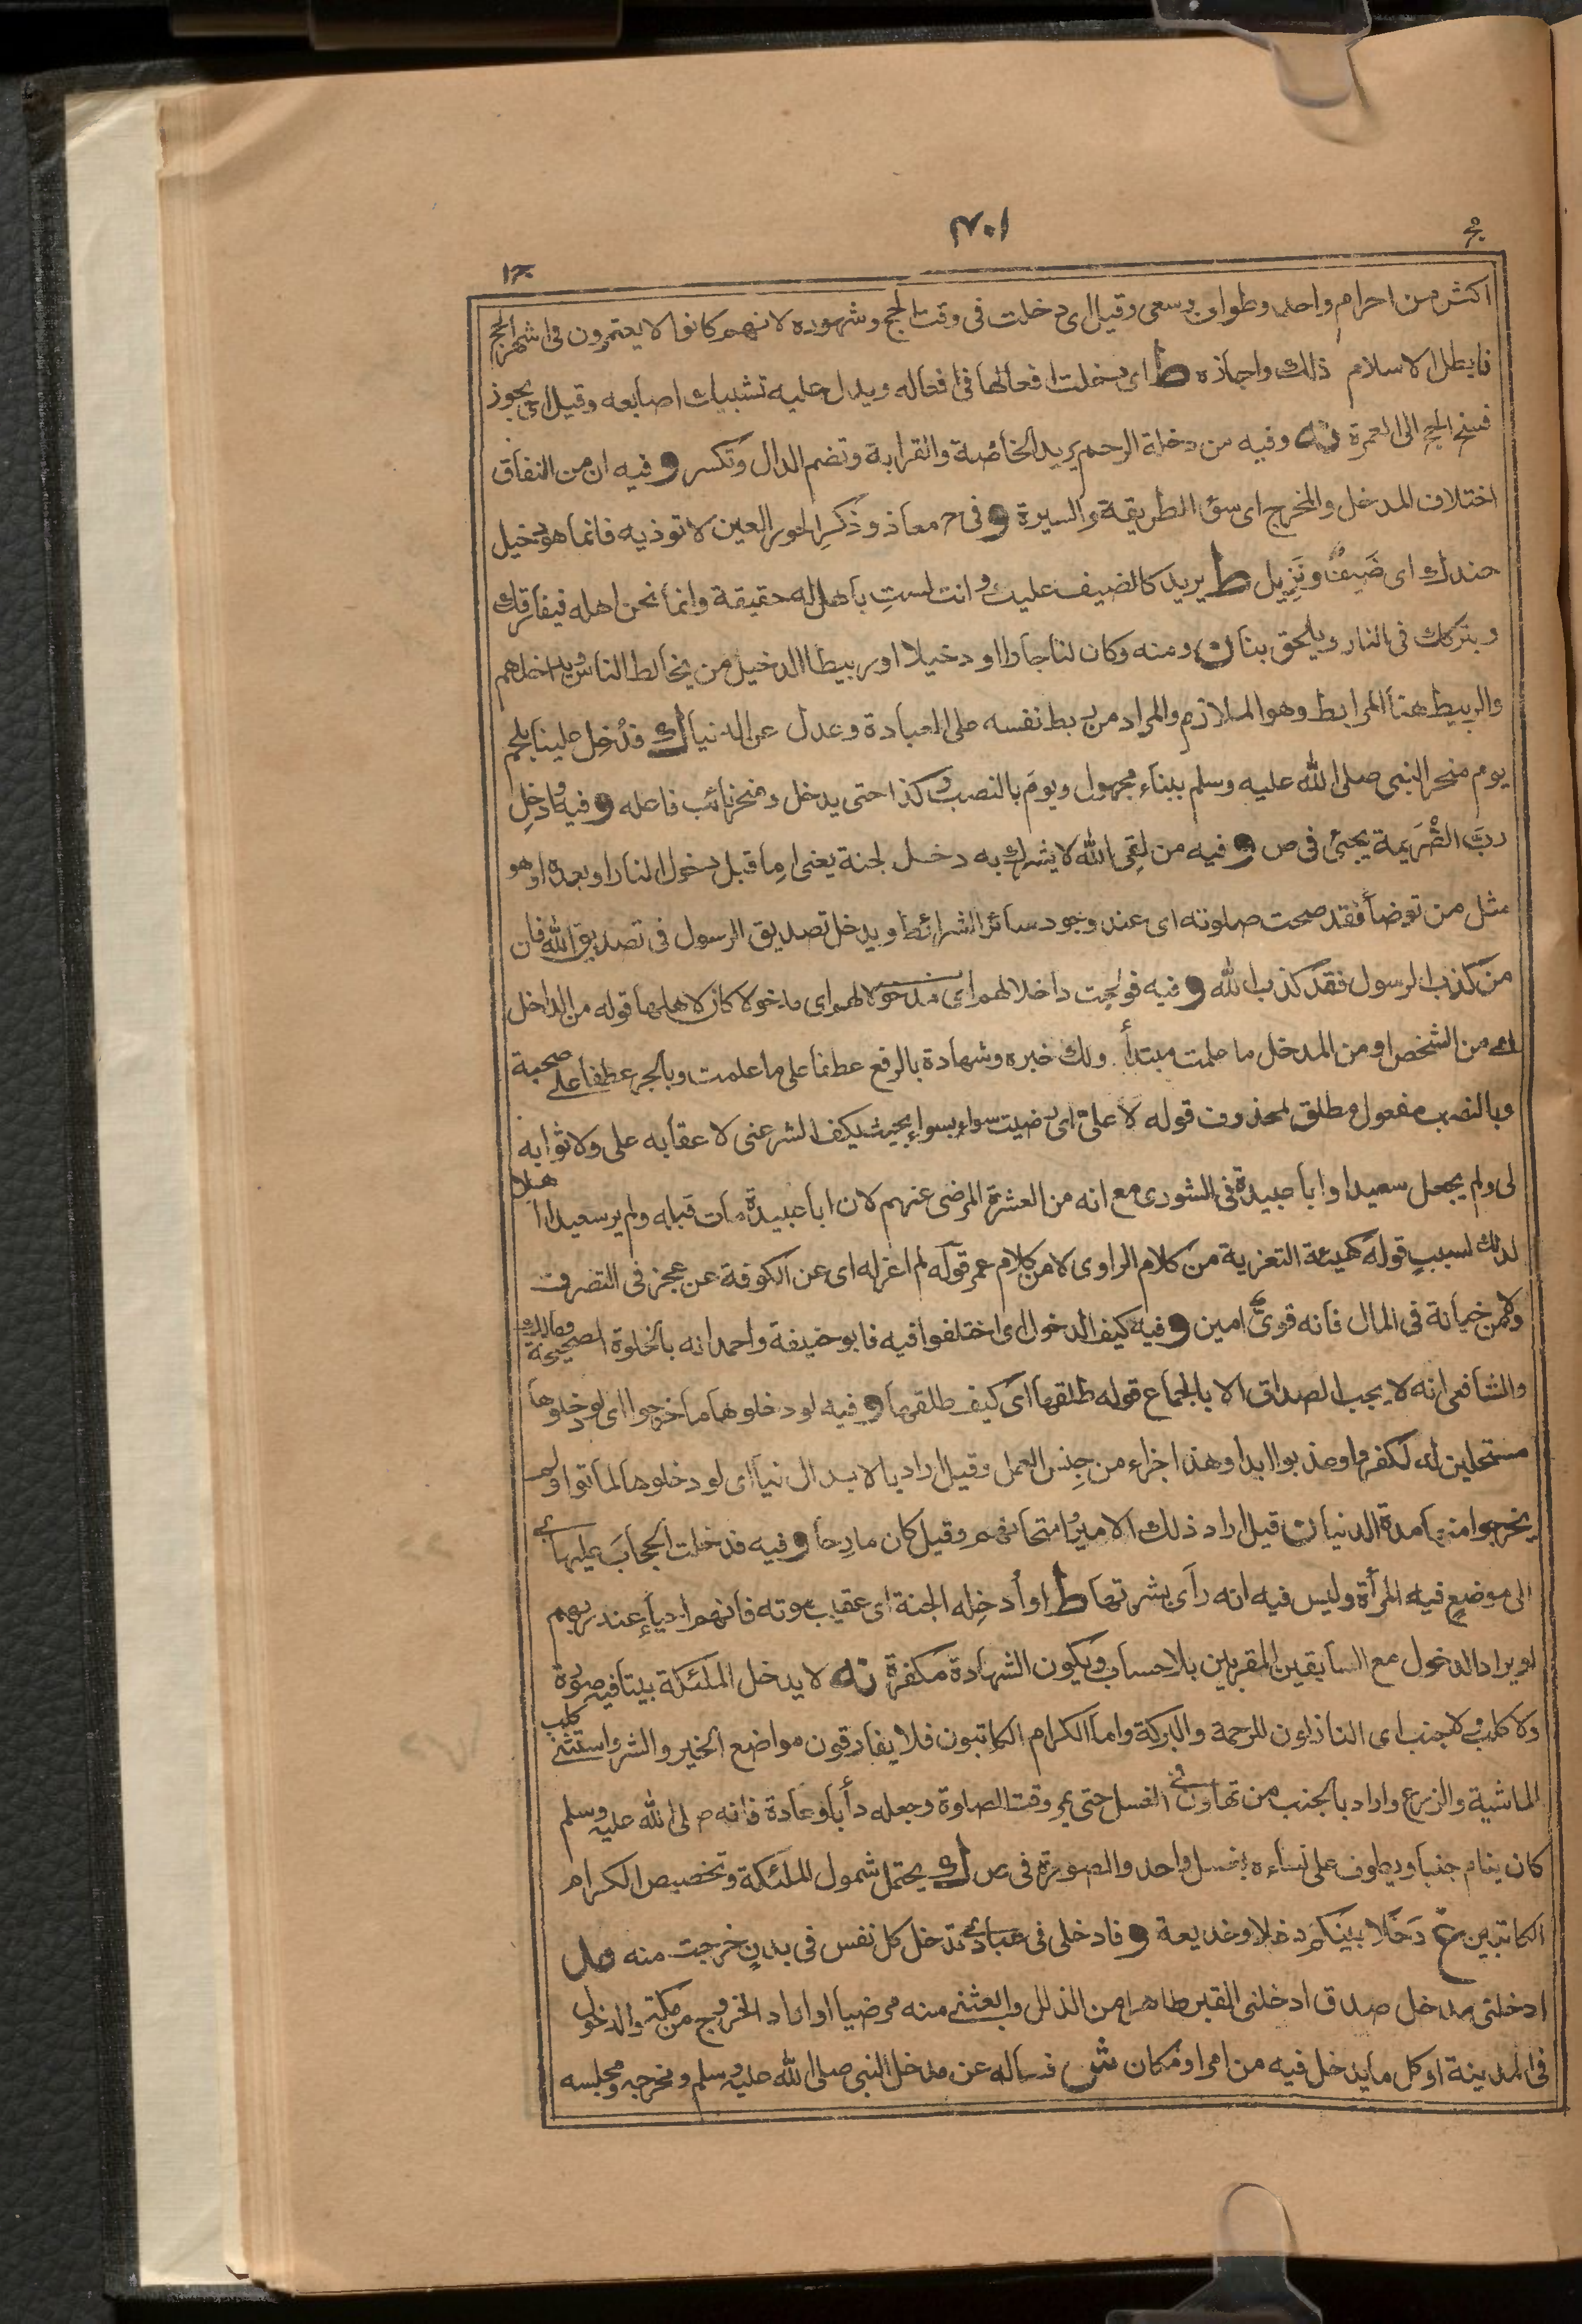 مج
۴۰۱
ج۱
اكثر من احرام واحد وطواف وسعى وقيل اى دخلت فى وقت الحج وشهوره لانهم كانوا لا يعتمرون فى اشهر الحج
فابطل الاسلام ذلك واجازه ط اى دخلت افعالها فى افعاله ويدل عليه تشبيك اصابعه وقيل اى يجوز
فسخ الحج الى العمرة نه وفيه من دخلة الرحم يريد الخاصة والقرابة وتضم الدال وتكسر و فيه ان من النفاق
اختلاف المدخل والمخرج اى سؤ الطريقة والسيرة و فى ح معاذ وذكر الحور العين لا توذيه فانما هو دخيل
عندك اى ضيف ونزيل ط يريد كالضيف عليك وانت لست باهل له حقيقة وانما نحن اهله فيفارقك
ويتركك فى النار ويلحق بنا ن ومنه وكان لنا جارا او دخيلا او ربيطا الدخيل من يخالط الناس ويداخلهم
والربيط هنا المرابط وهو الملازم والمراد من ربط نفسه على العبادة وعدل عن الدنيا ك فدُخل علينا بلحم
يوم منحر النبى صلى الله عليه وسلم ببناء مجهول ويوم بالنصب وكذا حتى يدخل ومنحر نائب فاعله و فيه وادخل
رب الصُّرَيمة يجئ فى ص و فيه من لقى الله لا يشرك به دخل لجنة يعنى اما قبل دخول النار او بعده او هو
مثل من توضأ فقد صحت صلوته اى عند وجود سائر الشرائط ويدخل تصديق الرسول فى تصديق الله فان
من كذب الرسول فقد كذب الله و فيه فولجت داخلا لهم اى مدخولا لهم اى مدخولا كان لاهلها قوله من الداخل
اى من الشخص او من المدخل ما علمت مبتدأ ولك خبره وشهادة بالرفع عطفا على ما علمت وبالجر عطفا على صحبة
وبالنصب مفعول مطلق لمحذوف قوله لا علىّ اى رضيت سواء بسواء بحيث يكف الشر عنى لا عقابه على ولا ثوابه
لى ولم يجعل سعيدا وابا عبيدة فى الشورى مع انه من العشرة المرضى عنهم لان ابا عبيدة مات قبله ولم ير سعيدا اهلا
لذلك لسبب قوله كهيئة التعزية من كلام الراوى لا من كلام عمر قوله لم اعزله اى عن الكوفة عن عجز فى التصرف
ولا من خيانة فى المال فانه قوى امين و فيه كيف الدخول اى اختلفوا فيه فابو حنيفة واحمد انه بالخلوة الصحيحة ومالك
والشافعى انه لا يجب الصداق الا بالجماع قوله طلقها اى كيف طلقها و فيه لو دخلوها ما خرجوا اى لو دخلوها
مستحلين له لكفروا وعذبوا ابدا وهذا جزاء من جنس العمل وقيل اراد بالابد ال نيا اى لو دخلوها لماتوا ولم
يخرجوا منها مدة الدنيا ن قيل اراد ذلك الامير امتحانهم وقيل كان مازحا و فيه فدخلت الحجاب عليها اى
الى موضع فيه المرأة وليس فيه انه رأى بشرتها ط او أدخله الجنة اى عقيب موته فانهم احياء عند ربهم
او يراد الدخول مع السابقين المقربين بلا حساب ويكون الشهادة مكفرة نه لا يدخل الملئكة بيتا فيه صورة
ولا كلب ولا جنب اى النازلون للرحمة والبركة واما الكرام الكاتبون فلا يفارقون مواضع الخير والشر واستثنى كلب
الماشية والزرع واراد بالجنب من تهاون فى الغسل حتى يمر وقت الصلوة وجعله دأبا وعادة فانه صلى الله عليه وسلم
كان ينام جنبا ويطوف على نساءه بغسل واحد والصورة فى ص ك و يحتمل شمول الملئكة وتخصيص الكرام
الكاتبين غ دخلا بينكم دخلا وخديعة و فادخلى فى عبادى تدخل كل نفس فى بدن خرجت منه مد
ادخلنى مدخل صدق ادخلنى القبر طاهرا من الذلل وابعثنى منه مرضيا او اراد الخروج من مكة والدخول
فى المدينة او كل ما يدخل فيه من امر او مكان ش فساله عن مدخل النبى صلى الله عليه وسلم ومخرجه ومجلسه